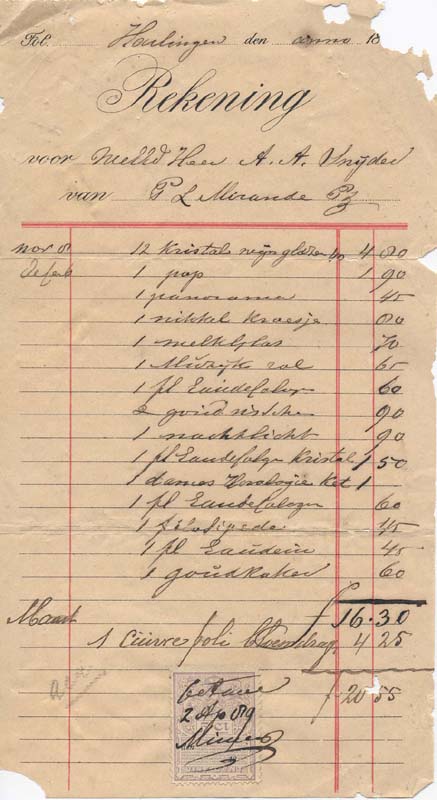 Fol. Harlingen den anno 18
Rekening
voor WelEd Heer A. A. Snijder
van P L Mirande Pz
12 Kristal wijnglazen 40 4 80
1 pop 1 90
1 panorama 45
1 nikkel kroesje 80
1 melkglas 70
1 Muzijk rol 65
1 fl Eaudecologn 60
2 goudvissche 90
1 nachtlicht 90
1 fl Eaudecologn Kristal 1 50
1 dames Horologie Ket 1
1 fl Eaudecologn 60
1 filosipede 45
1 fl Eau 45
1 goudkoker 60
f 16.30
Maart
1 Cuivre poli 4 25
f 20 55
betaald
2 Ap 89